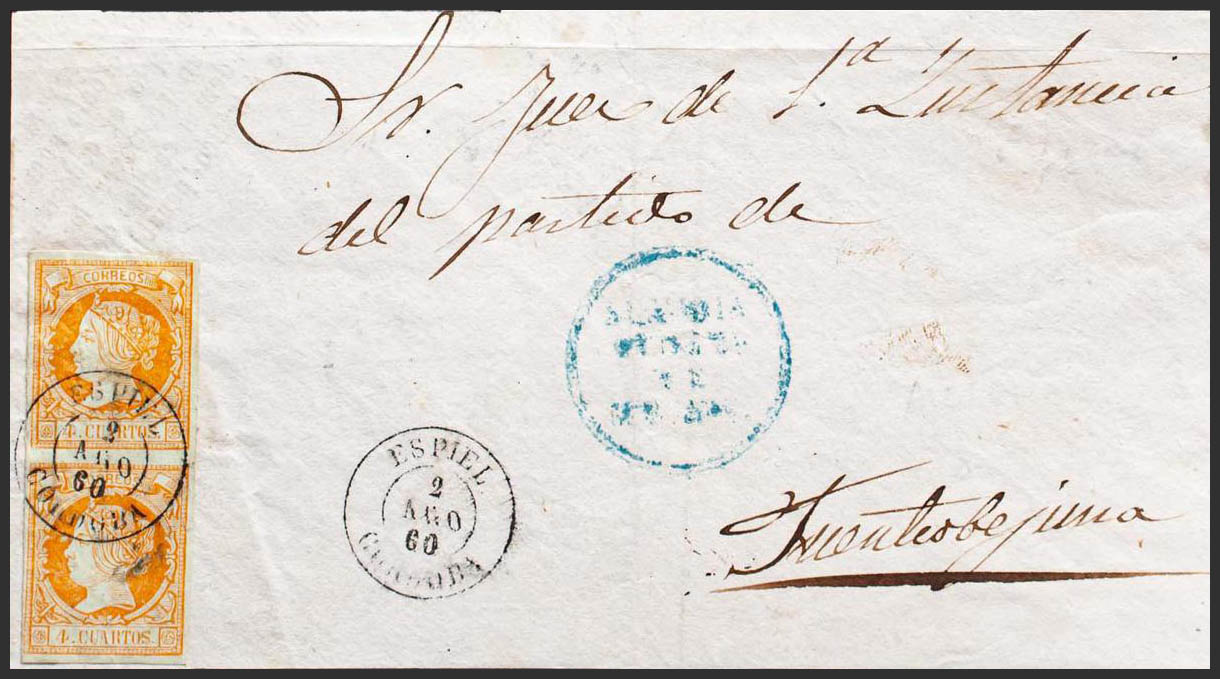 Sr. Juez de 1.ª Instancia
del partido de
Fuenteobejuna
CORREOS
4. CUARTOS.
ESPIEL
2
AGO
60
CORDOBA
4. CUARTOS.
ESPIEL.
2
AGO
60
CORDOBA